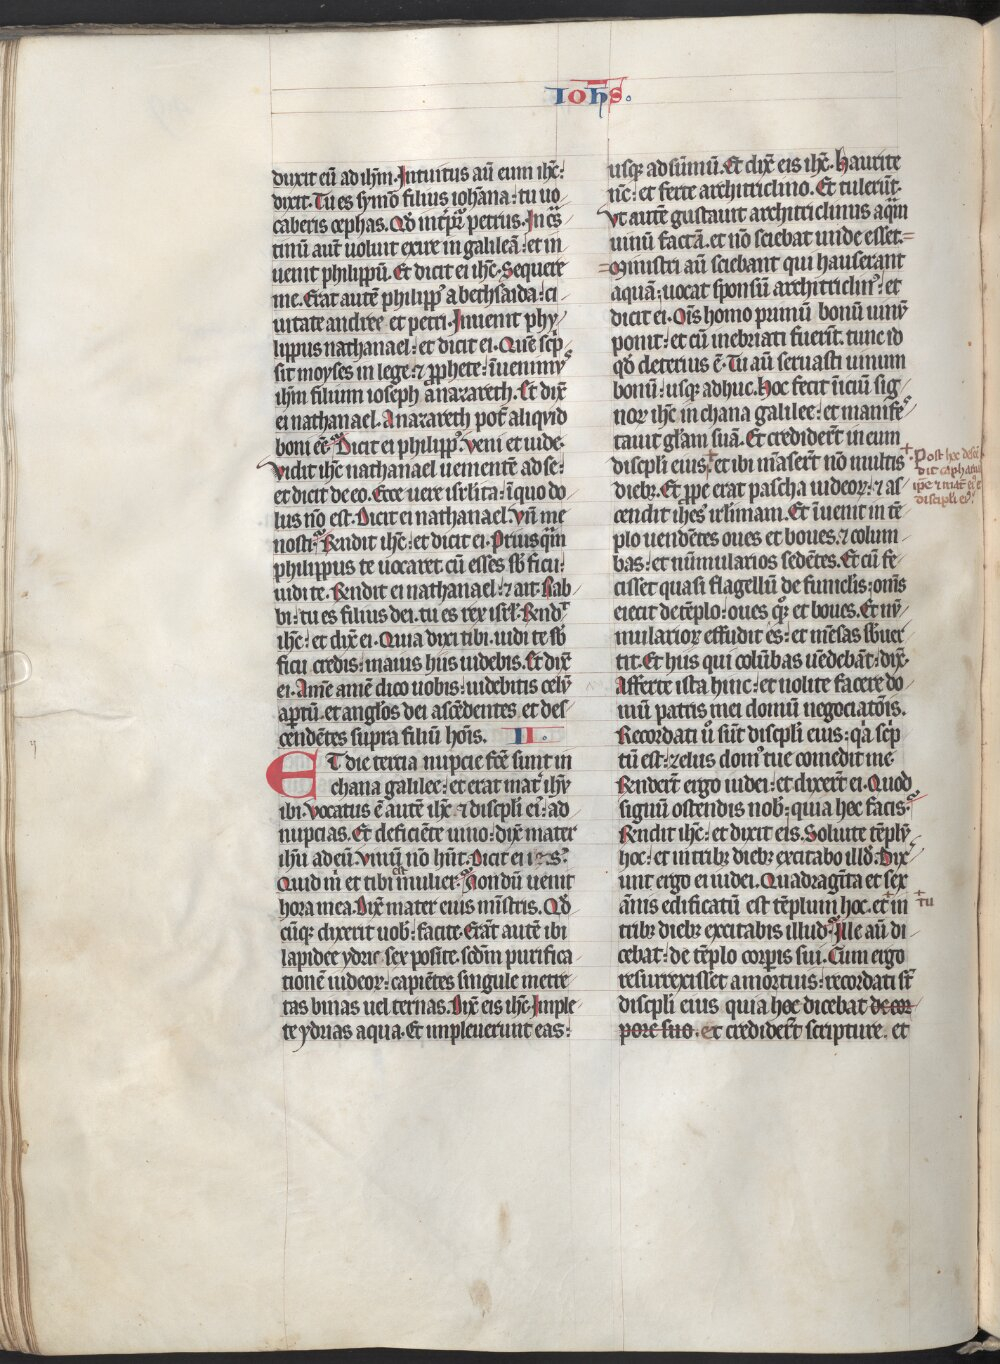 Ioh̅s.
duxit eū ad ih̅m. Intuitus aū eum ihc̅:
dixit. Tu es symō filius ioh̅anna: tu uo
caberis cephas. Qd̅ int̅pr̅ petrus. In cs̅
tinū aut̅ uoluit exire in galileā: et in
uenit philippū. Et dicit ei ihc̅. Sequere
me. Erat autē philippꝰ a bethsaida: ci
uitate andree et petri. Inuenit phy
lippus nathanael: et dicit ei. Quē scp̅
sit moyses in lege: ⁊ ꝓphete: īuenimꝰ
ih̅m filium ioseph a nazareth. Et dix̅
ei nathanael. A nazareth pot̅ aliqvid
boni ee̅. Dicit ei philippꝰ. Veni et uide.
Vidit ihc̅ nathanael uementē ad se:
et dicit de eo. Ecce uere isrl̅ita: ī quo do
lus nō est. Dicit ei nathanael. Vn̅ me
nosti. Rn̅dit ihc̅: et dicit ei. Priusq̅m
philippus te uocaret cū esses sb̅ ficu:
uidi te. Rn̅dit ei nathanael: ⁊ ait. Rab
bi: tu es filius dei. tu es rex isrl̅. Rn̅dᵗ
ihc̅: et dix̅ ei. Quia dixi tibi. uidi te sb̅
ficu credis: maius hiis uidebis. Et dix̅
ei. Amē amē dico uobis: uidebitis celū
aptū et angl̅os dei ascēdentes et des
cendētes supra filiū ho̅is. II.
ET die tercia nupcie fc̅e sunt in
chana galilee: et erat mat̅ ih̅u
ibi. Vocatus ē autē ihc̅ ⁊ discpl̅i eiꝰ: ad
nupcias. Et deficiēte uino: dix̅ mater
ih̅u ad eū. Vinū nō hn̅t. Dicit ei ihc̅.
Quid m̅ et tibi est mulier. Nondū uenit
hora mea. Dix̅ mater eius mīstris. Qd̅
cūq; dixerit uob̅: facite. Erāt autē ibi
lapidee ydrie sex posite. scd̅m purifica
tionē iudeoꝝ: capiētes singule metre
tas binas uel ternas. Dix̅ eis ihc̅. Imple
te ydrias aqua. Et impleuerunt eas:
usq; ad sūmū. Et dix̅ eis ihc̅. Haurite
nc̅: et ferte architriclino. Et tulerūt.
Vt autē gustauit architriclinus aq̅m
uinū factā. et nō sciebat unde esset.
Ministri aū sciebant qui hauserant
aquā: uocat sponsū architriclinꝰ: et
dicit ei. Oīs homo primū bonū uinū
ponit: et cū inebriati fuerīt. tunc id
qd̅ deterius ē. Tu aū seruasti uinum
bonū: usq; adhuc. Hoc fecit īiciū sig
noꝝ ihc̅ in chana galilee: et manifes
tauit gl̅am suā. Et credider̅t in eum
discpli eius. et ibi māser̅t nō multis
dieb;. Et ꝓpe erat pascha iudeoꝝ: ⁊ as
cendit ihes̅ irl̅imam. Et īuenit in tē
plo uendētes oues et boues. ⁊ colum
bas: et nūmularios sedētes. Et cū fe
cisset quasi flagellū de funiclis: om̅s
eiecit de tēplo: oues qͦ; et boues. Et nū
mularioꝝ effudit es: et mēsas sb̅uer
tit. Et hiis qui colūbas uēdebāt: dix̅.
Afferte ista hinc: et nolite facere do
mū patris mei domū negociatōis.
Recordati ů sūt discpli eius: qa scp̅
tū est: zelus domꝰ tue comedit me.
Rn̅der̅t ergo iudei: et dixer̅t ei. Quod
signū ostendis nob̅: quia hec facis.
Rn̅dit ihc̅: et dixit eis. Soluite tēplū
hoc: et in trib; dieb; excitabo illd̅. Dix
unt ergo ei iudei. Quadragīta et sex
annis edificatū est tēplum hoc. et in
trib; dieb; excitabis illud. Ille aū di
cebat: de tēplo corpis sui. Cum ergo
resurrexisset a mortuis: recordati st̅
discpli eius quia hoc dicebat de cor
pore suo. et credider̅t scripture. et
+ Post hec descē
dit capharnū
ip̅e ⁊ mat̅ eiꝰ et
discipl̅i eiꝰ.
+ tu